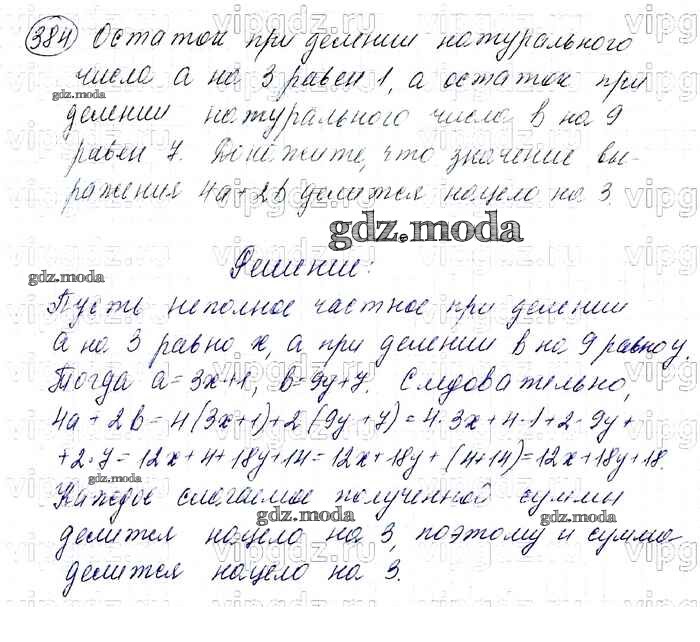 384 Остаток при делении натурального
числа a на 3 равен 1, а остаток при
gdz.moda
делении натурального числа b на 9
равен 7. Докажите, что значение вы-
ражения 4a+2b делится нацело на 3.
gdz.moda
Решение:
gdz.moda
Пусть неполное частное при делении
a на 3 равно x, а при делении b на 9 равно y.
Тогда a=3x+1, b=9y+7. Следовательно,
4a+2b=4(3x+1)+2(9y+7)=4·3x+4·1+2·9y+
+2·7=12x+4+18y+14=12x+18y+(4+14)=12x+18y+18.
gdz.moda
Каждое слагаемое полученной суммы
gdz.moda gdz.moda
делится нацело на 3, поэтому и сумма
делится нацело на 3.